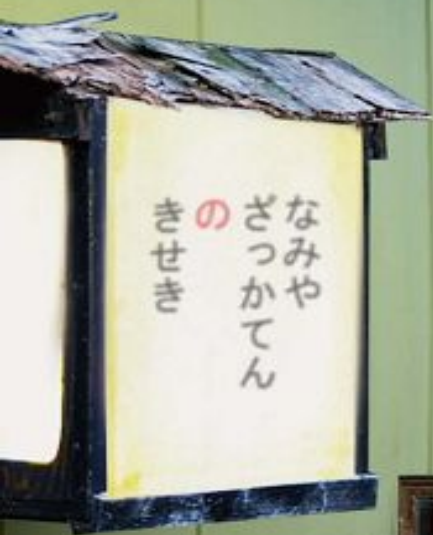 なみや
ざっかてん
の
きせき